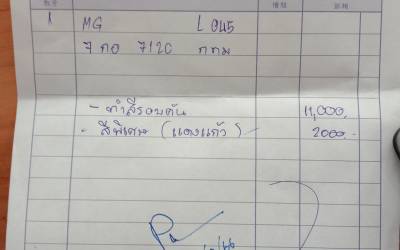 1 MG L 945
7 กอ 7120 กทม
- ทำสีรอบคัน 11,000.
- สีพิเศษ (แดงแก้ว) 2000.-